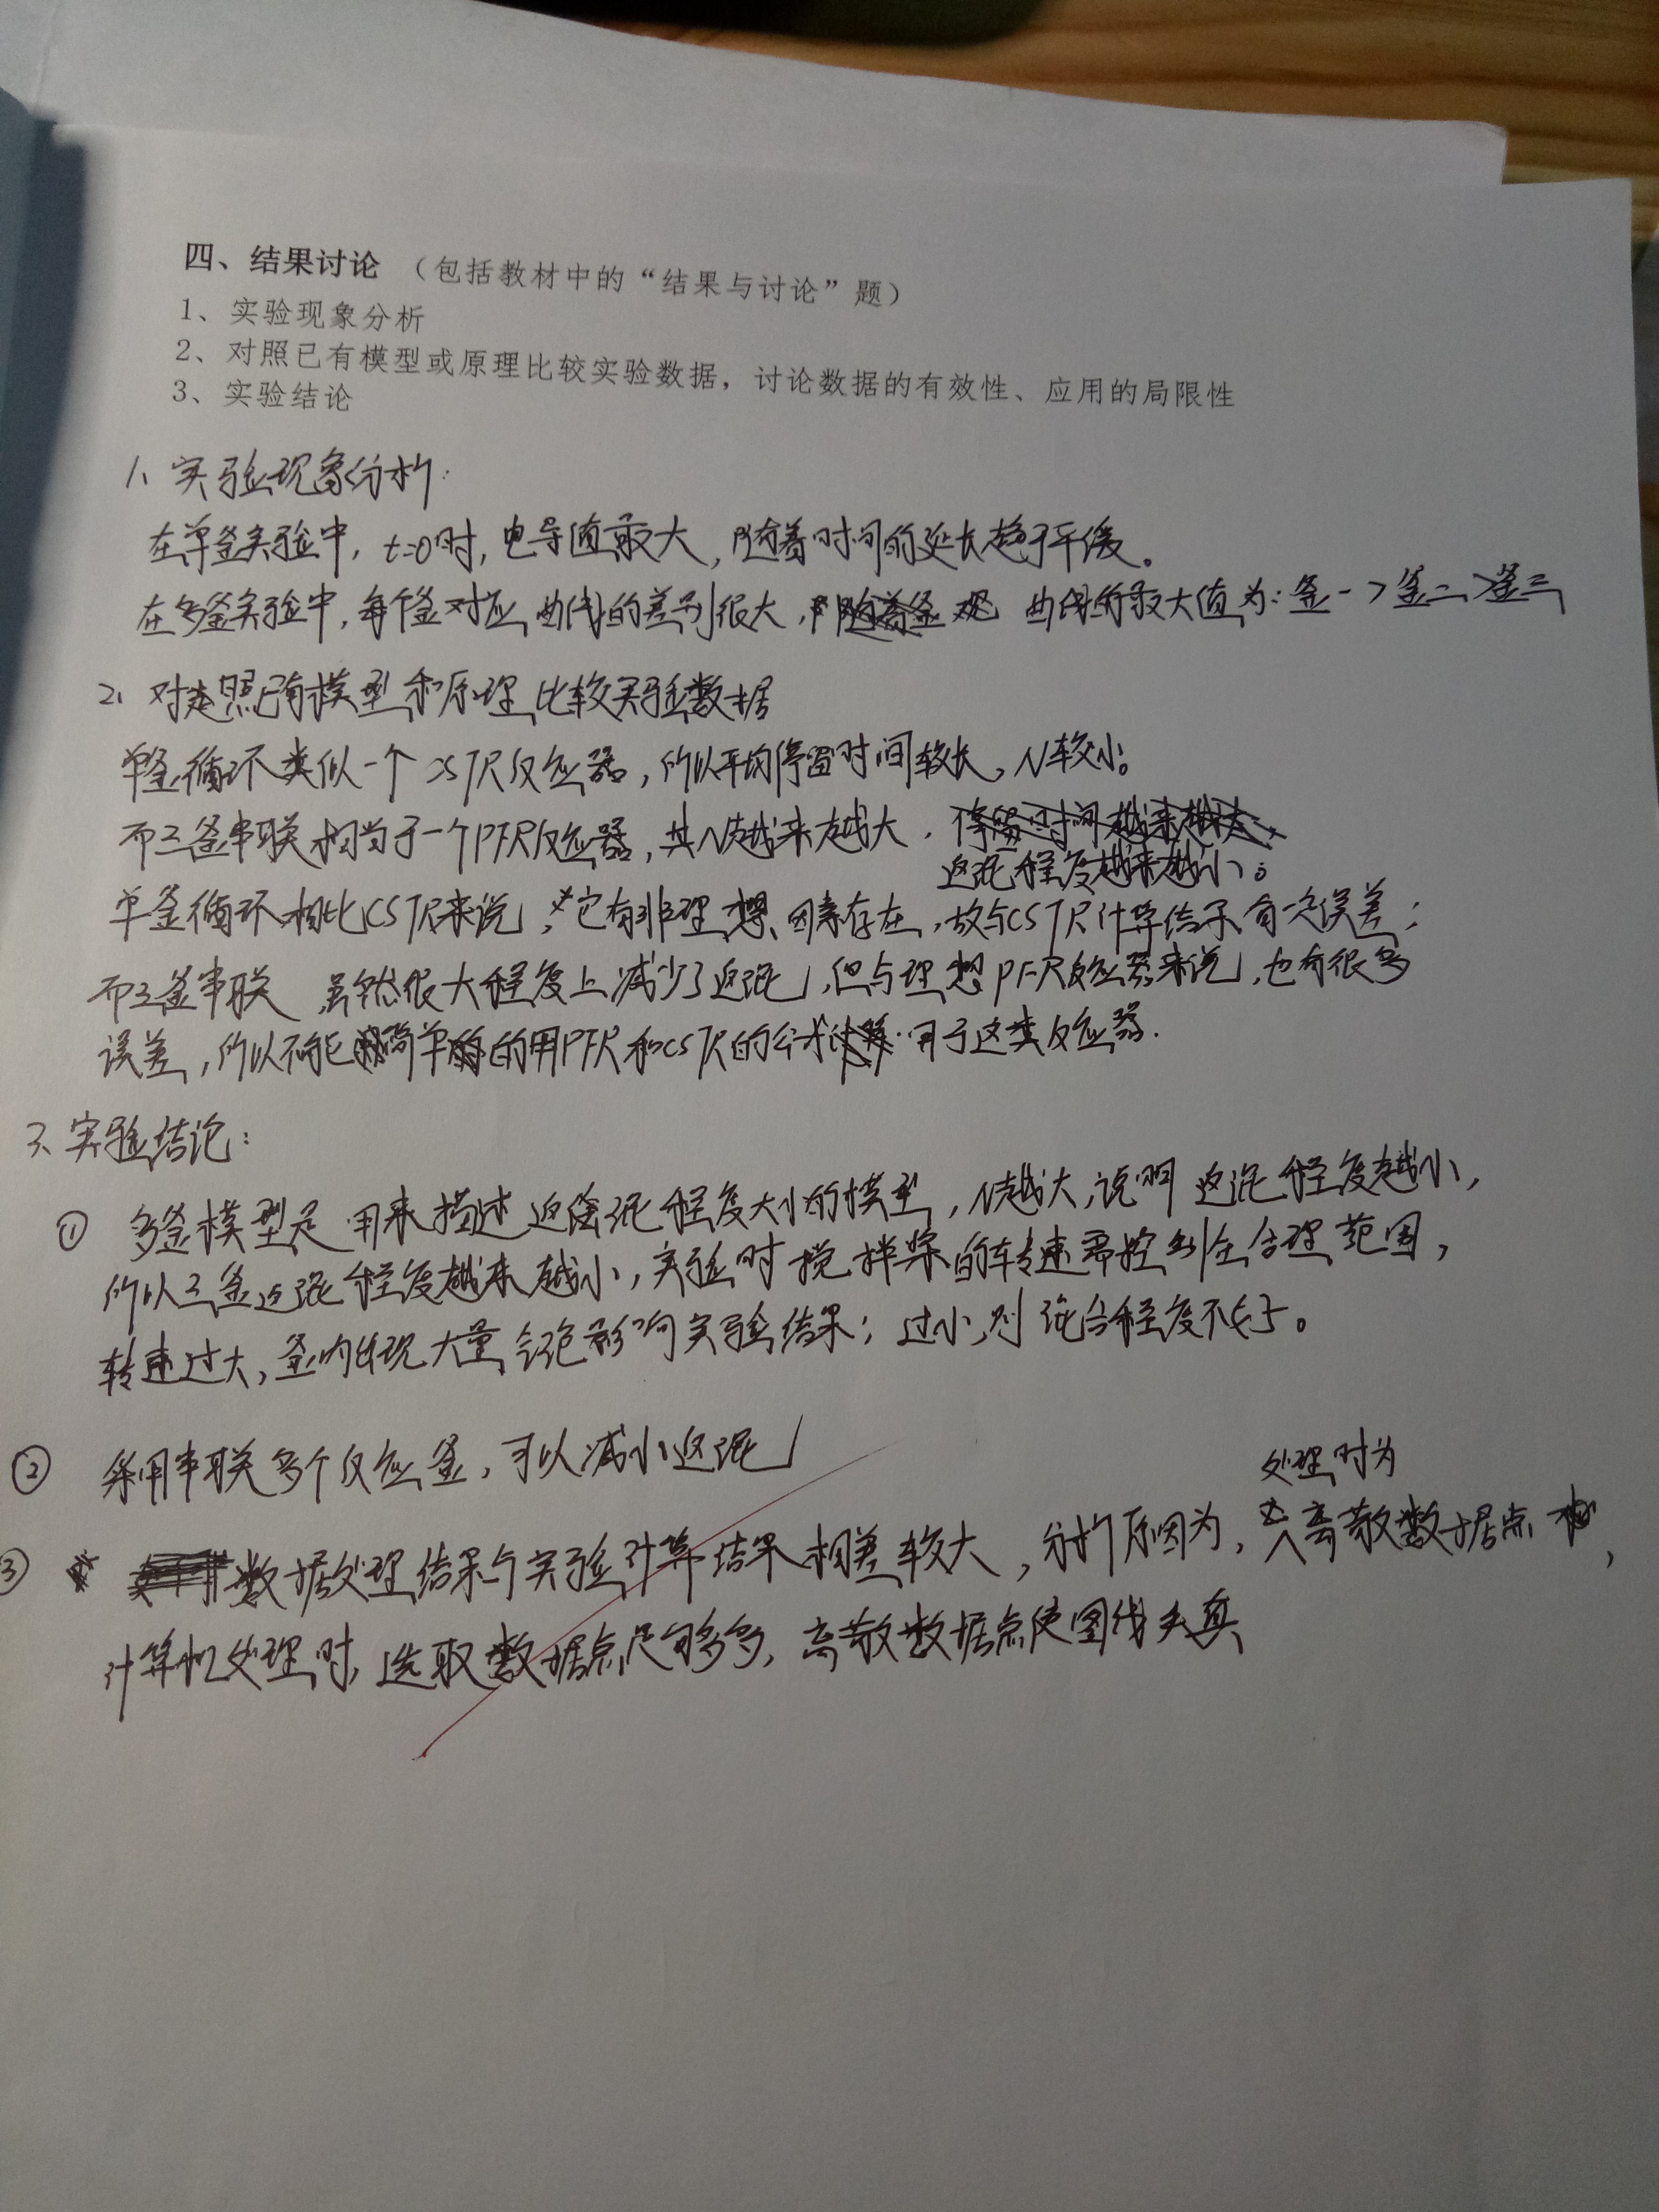 四、结果讨论 （包括教材中的“结果与讨论”题）
1、实验现象分析
2、对照已有模型或原理比较实验数据，讨论数据的有效性、应用的局限性
3、实验结论
1、实验现象分析：
在单釜实验中，t=0时，电导值最大，随着时间的延长趋于平缓。
在多釜实验中，每个釜对应曲线的差别很大，曲线的最大值为：釜一>釜二>釜三
2、对照已有模型和原理比较实验数据
单釜循环类似一个CSTR反应器，所以平均停留时间较长，N较小。
而三釜串联相当于一个PFR反应器，其N越来越大，停留时间越来越大，
返混程度越来越小。
单釜循环相比CSTR来说，它有非理想因素存在，故与CSTR计算结果有一定误差；
而三釜串联虽然很大程度上减少了返混，但与理想PFR反应器来说，也有很多
误差，所以不能简单的用PFR和CSTR的公式用于这类反应器.
3、实验结论：
① 多釜模型是用来描述返混程度大小的模型，N越大，说明返混程度越小，
所以三釜返混程度越来越小，实验时搅拌桨的转速需控制在合理范围，
转速过大，釜内出现大量气泡影响实验结果；过小，则混合程度不好。
② 采用串联多个反应釜，可以减小返混
处理时为
③ 数据处理结果与实验计算结果相差较大，分析原因为，离散数据点，
计算机处理时，选取数据点足够多，离散数据点使图线失真